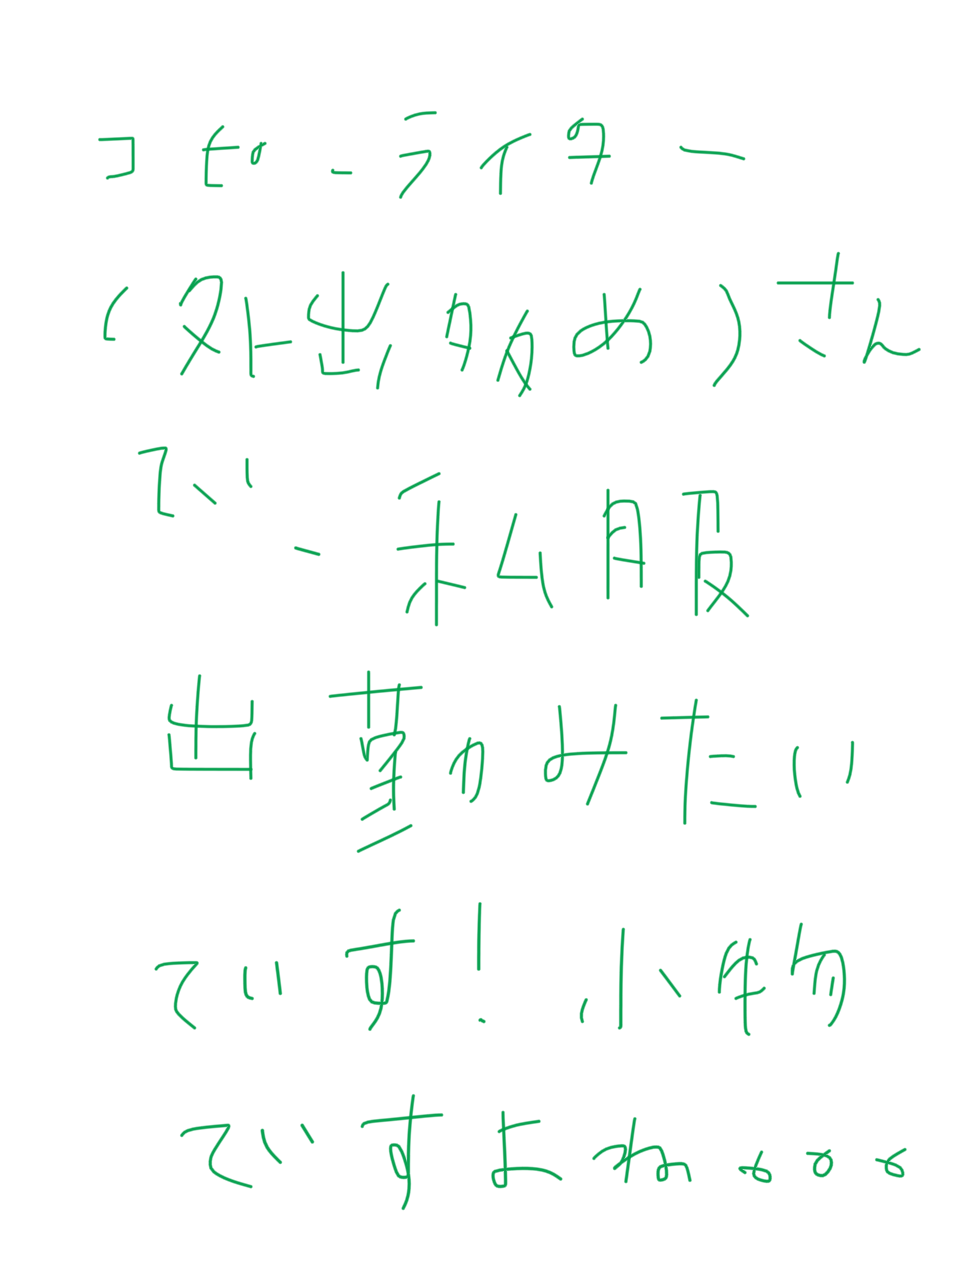 コピーライター
(外出多め)さん
で、私服
出勤かみたい
です!小物
ですよね。。。